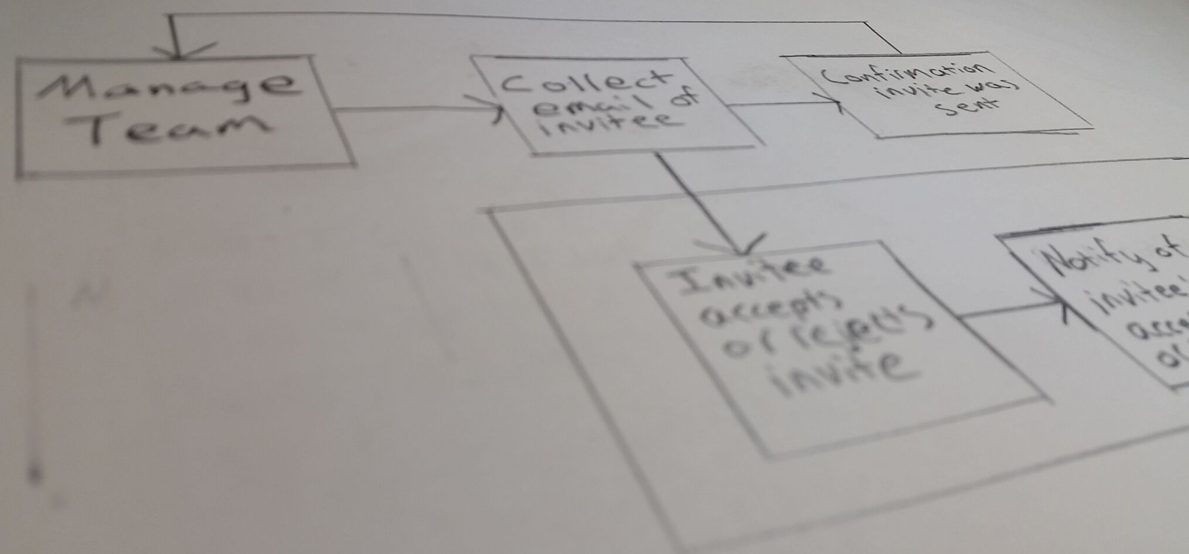 Manage
Team
Collect
email of
invitee
Confirmation
invite was
sent
Invitee
accepts
or rejects
invite
Notify of
invitee'
acce
or